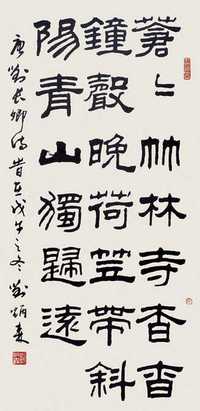 蒼〻竹林寺杳杳
鐘聲晚荷笠帶斜
陽青山獨歸遠
唐劉長卿詩旹在戊午之冬劉炳森